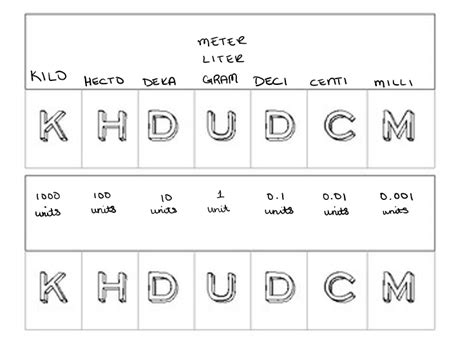 METER
LITER
KILO HECTO DEKA GRAM DECI CENTI MILLI
K H D U D C M
1000 100 10 1 0.1 0.01 0.001
units units units unit units units units
K H D U D C M